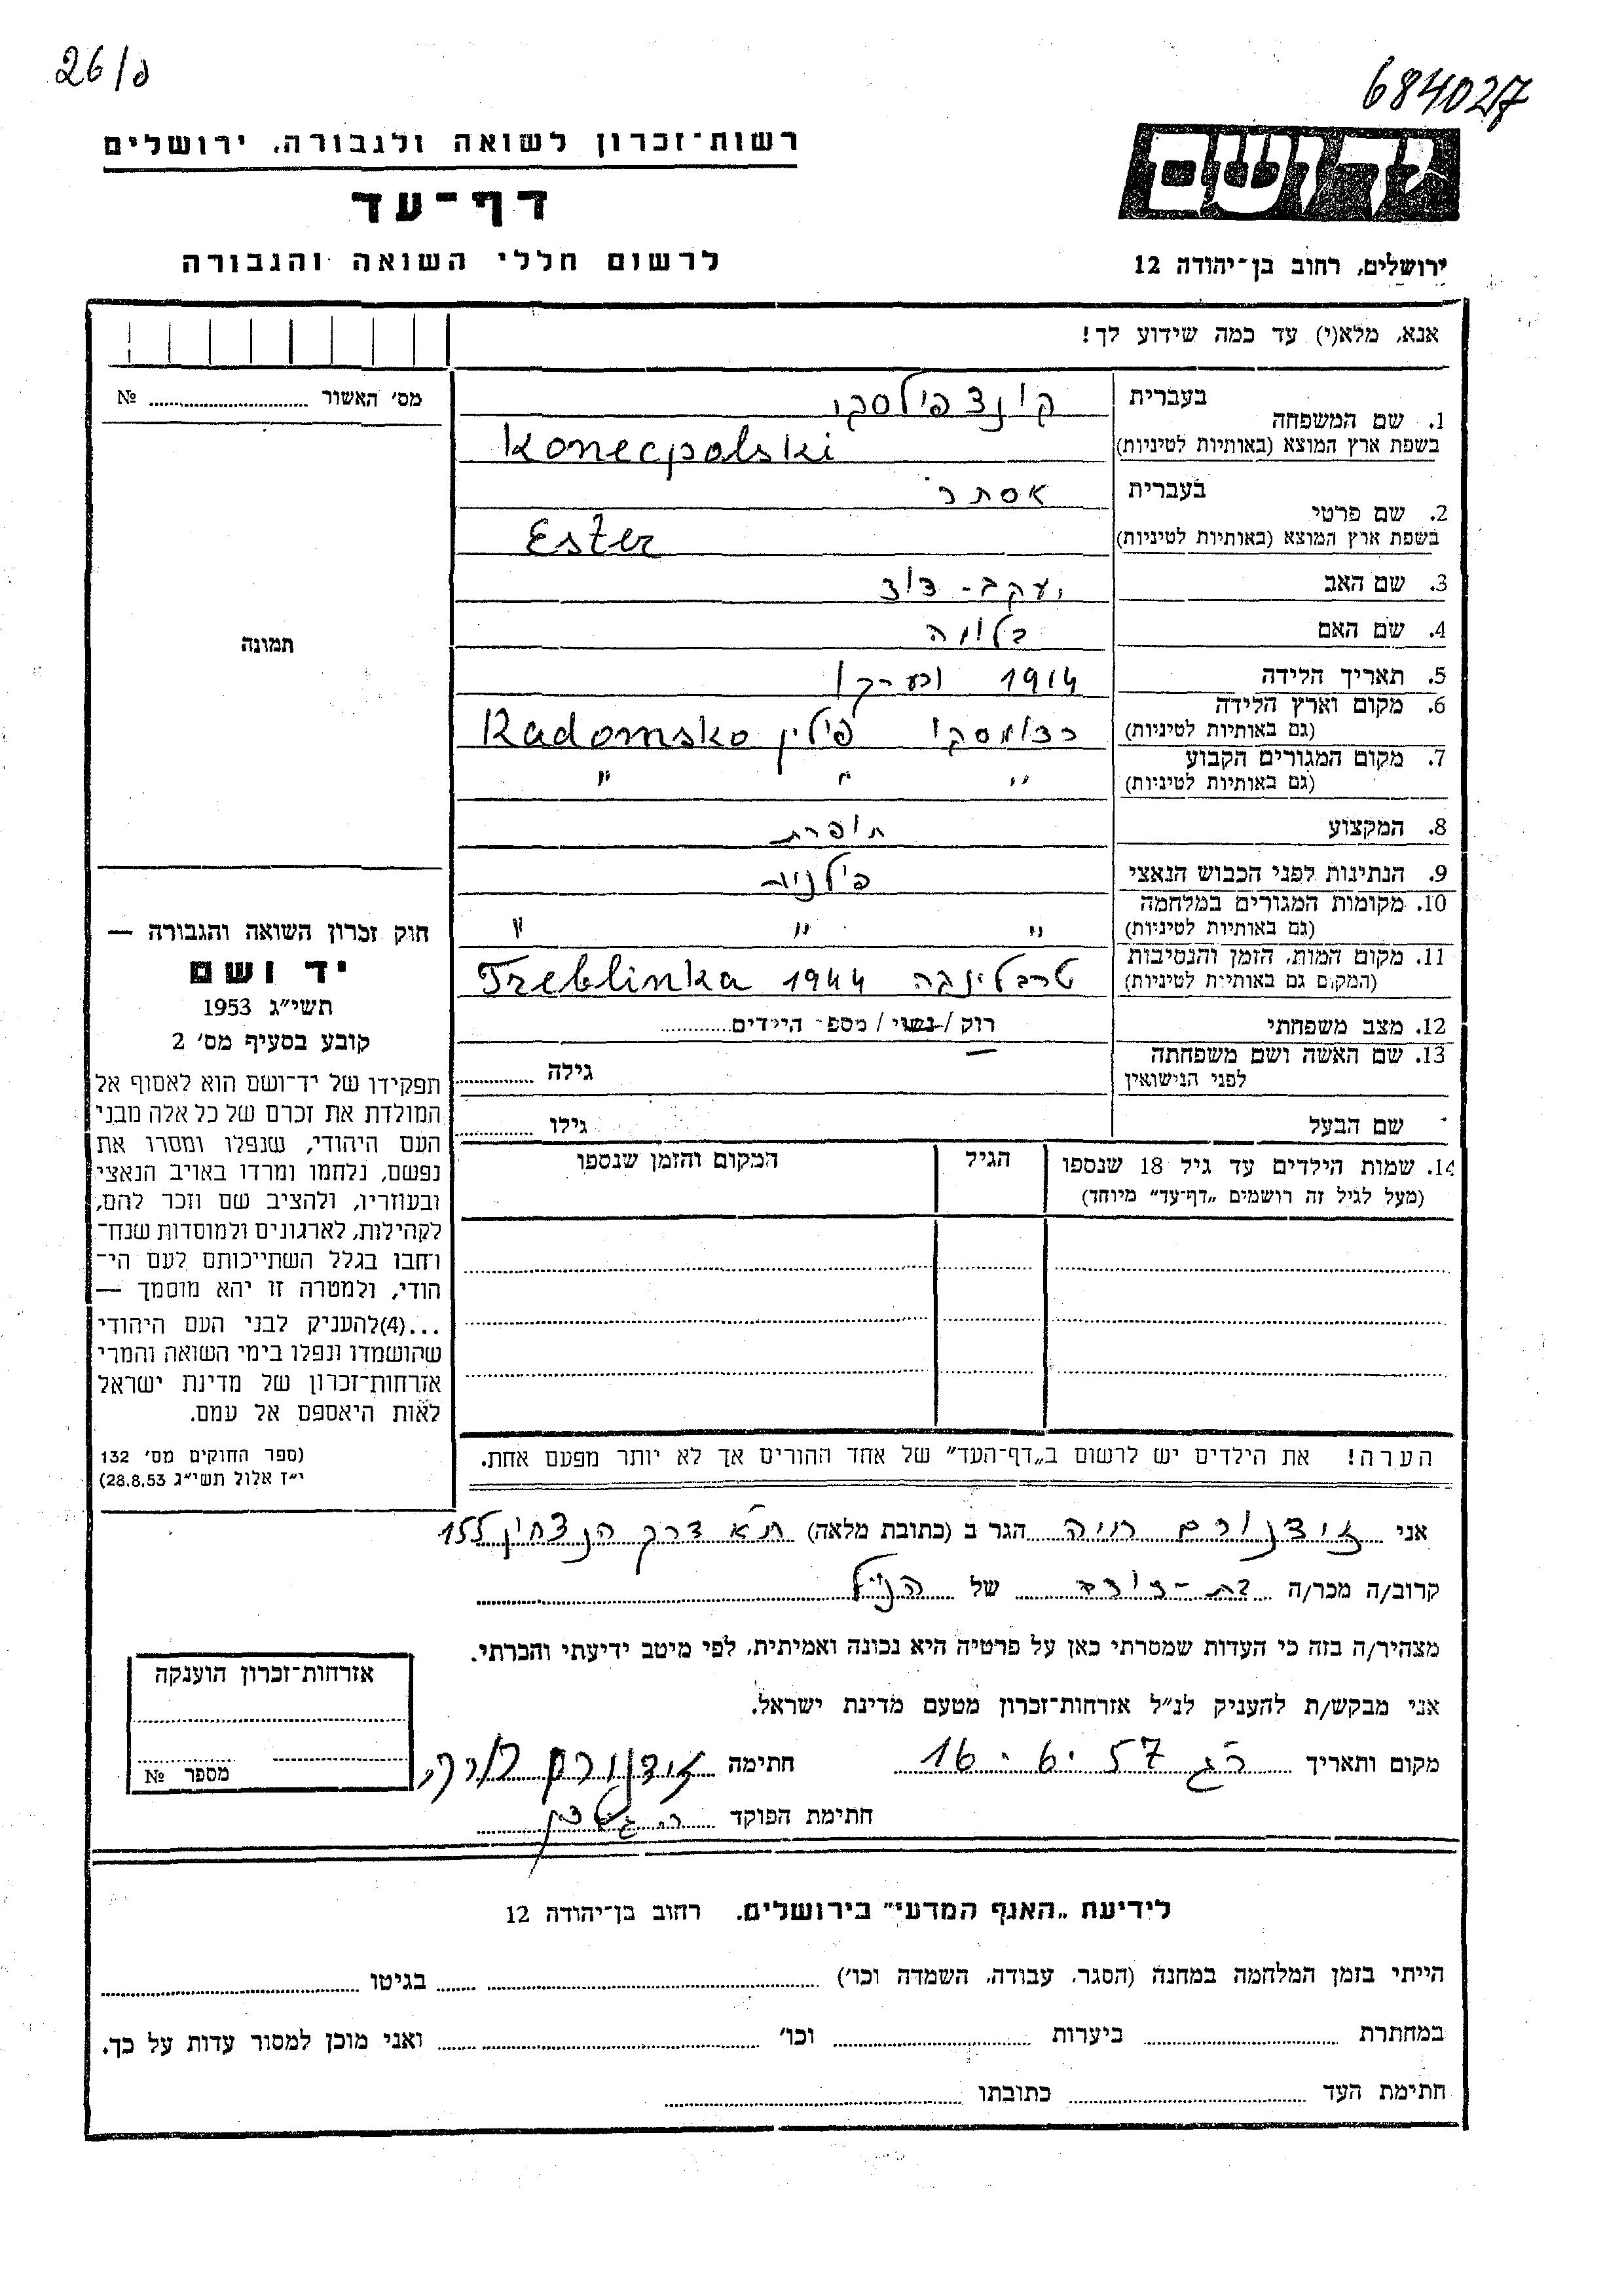 26/ם
684027
רשות־זכרון לשואה ולגבורה, ירושלים
דף־עד
לרשום חללי השואה והגבורה
יד ושם
ירושלים, רחוב בן־יהודה 12
אנא, מלא(י) עד כמה שידוע לך!
מס׳ האשור № ........
בעברית קונצפולסקי
1. שם המשפחה
בשפת ארץ המוצא (באותיות לטיניות) Konecpolski
בעברית אסתר
2. שם פרטי
בשפת ארץ המוצא (באותיות לטיניות) Ester
3. שם האב יעקב-דוד
4. שם האם בלומה
תמונה
5. תאריך הלידה 1914
6. מקום וארץ הלידה
(גם באותיות לטיניות) רדומסקו פולין Radomsko
7. מקום המגורים הקבוע
(גם באותיות לטיניות) " " "
8. המקצוע תופרת
9. הנתינות לפני הכבוש הנאצי פולנית
10. מקומות המגורים במלחמה
(גם באותיות לטיניות) " " "
11. מקום המות, הזמן והנסיבות
(המקום גם באותיות לטיניות) טרבלינקה 1944 Treblinka
12. מצב משפחתי רוק / נשוי / מספר הילדים........
13. שם האשה ושם משפחתה
לפני הנישואין — גילה ........
שם הבעל גילו ........
14. שמות הילדים עד גיל 18 שנספו
(מעל לגיל זה רושמים „דף־עד״ מיוחד)
הגיל
המקום והזמן שנספו
הערה! את הילדים יש לרשום ב„דף־העד״ של אחד ההורים אך לא יותר מפעם אחת.
חוק זכרון השואה והגבורה —
יד ושם
תשי״ג 1953
קובע בסעיף מס׳ 2
תפקידו של יד־ושם הוא לאסוף אל
המולדת את זכרם של כל אלה מבני
העם היהודי, שנפלו ומסרו את
נפשם, נלחמו ומרדו באויב הנאצי
ובעוזריו, ולהציב שם וזכר להם,
לקהילות, לארגונים ולמוסדות שנח־
רחבו בגלל השתייכותם לעם הי־
הודי, ולמטרה זו יהא מוסמך —
...(4)להעניק לבני העם היהודי
שהושמדו ונפלו בימי השואה והמרי
אזרחות־זכרון של מדינת ישראל
לאות היאספם אל עמם.
(ספר החוקים מס׳ 132
י״ז אלול תשי״ג 28.8.53)
אני הגר ב (כתובת מלאה) ת״א דרך הנצחון 155
קרוב/ה מכר/ה בת-דודה של הנ״ל
מצהיר/ה בזה כי העדות שמסרתי כאן על פרטיה היא נכונה ואמיתית, לפי מיטב ידיעתי והכרתי.
אני מבקש/ת להעניק לנ״ל אזרחות־זכרון מטעם מדינת ישראל.
מקום ותאריך רג 16.6.57 חתימה
חתימת הפוקד
אזרחות־זכרון הוענקה
מספר №
לידיעת „האגף המדעי״ בירושלים. רחוב בן־יהודה 12
הייתי בזמן המלחמה במחנה (הסגר, עבודה, השמדה וכו׳) ........ בגיטו ........
במחתרת ........ ביערות ........ וכו׳ ........ ואני מוכן למסור עדות על כך.
חתימת העד ........ כתובתו ........